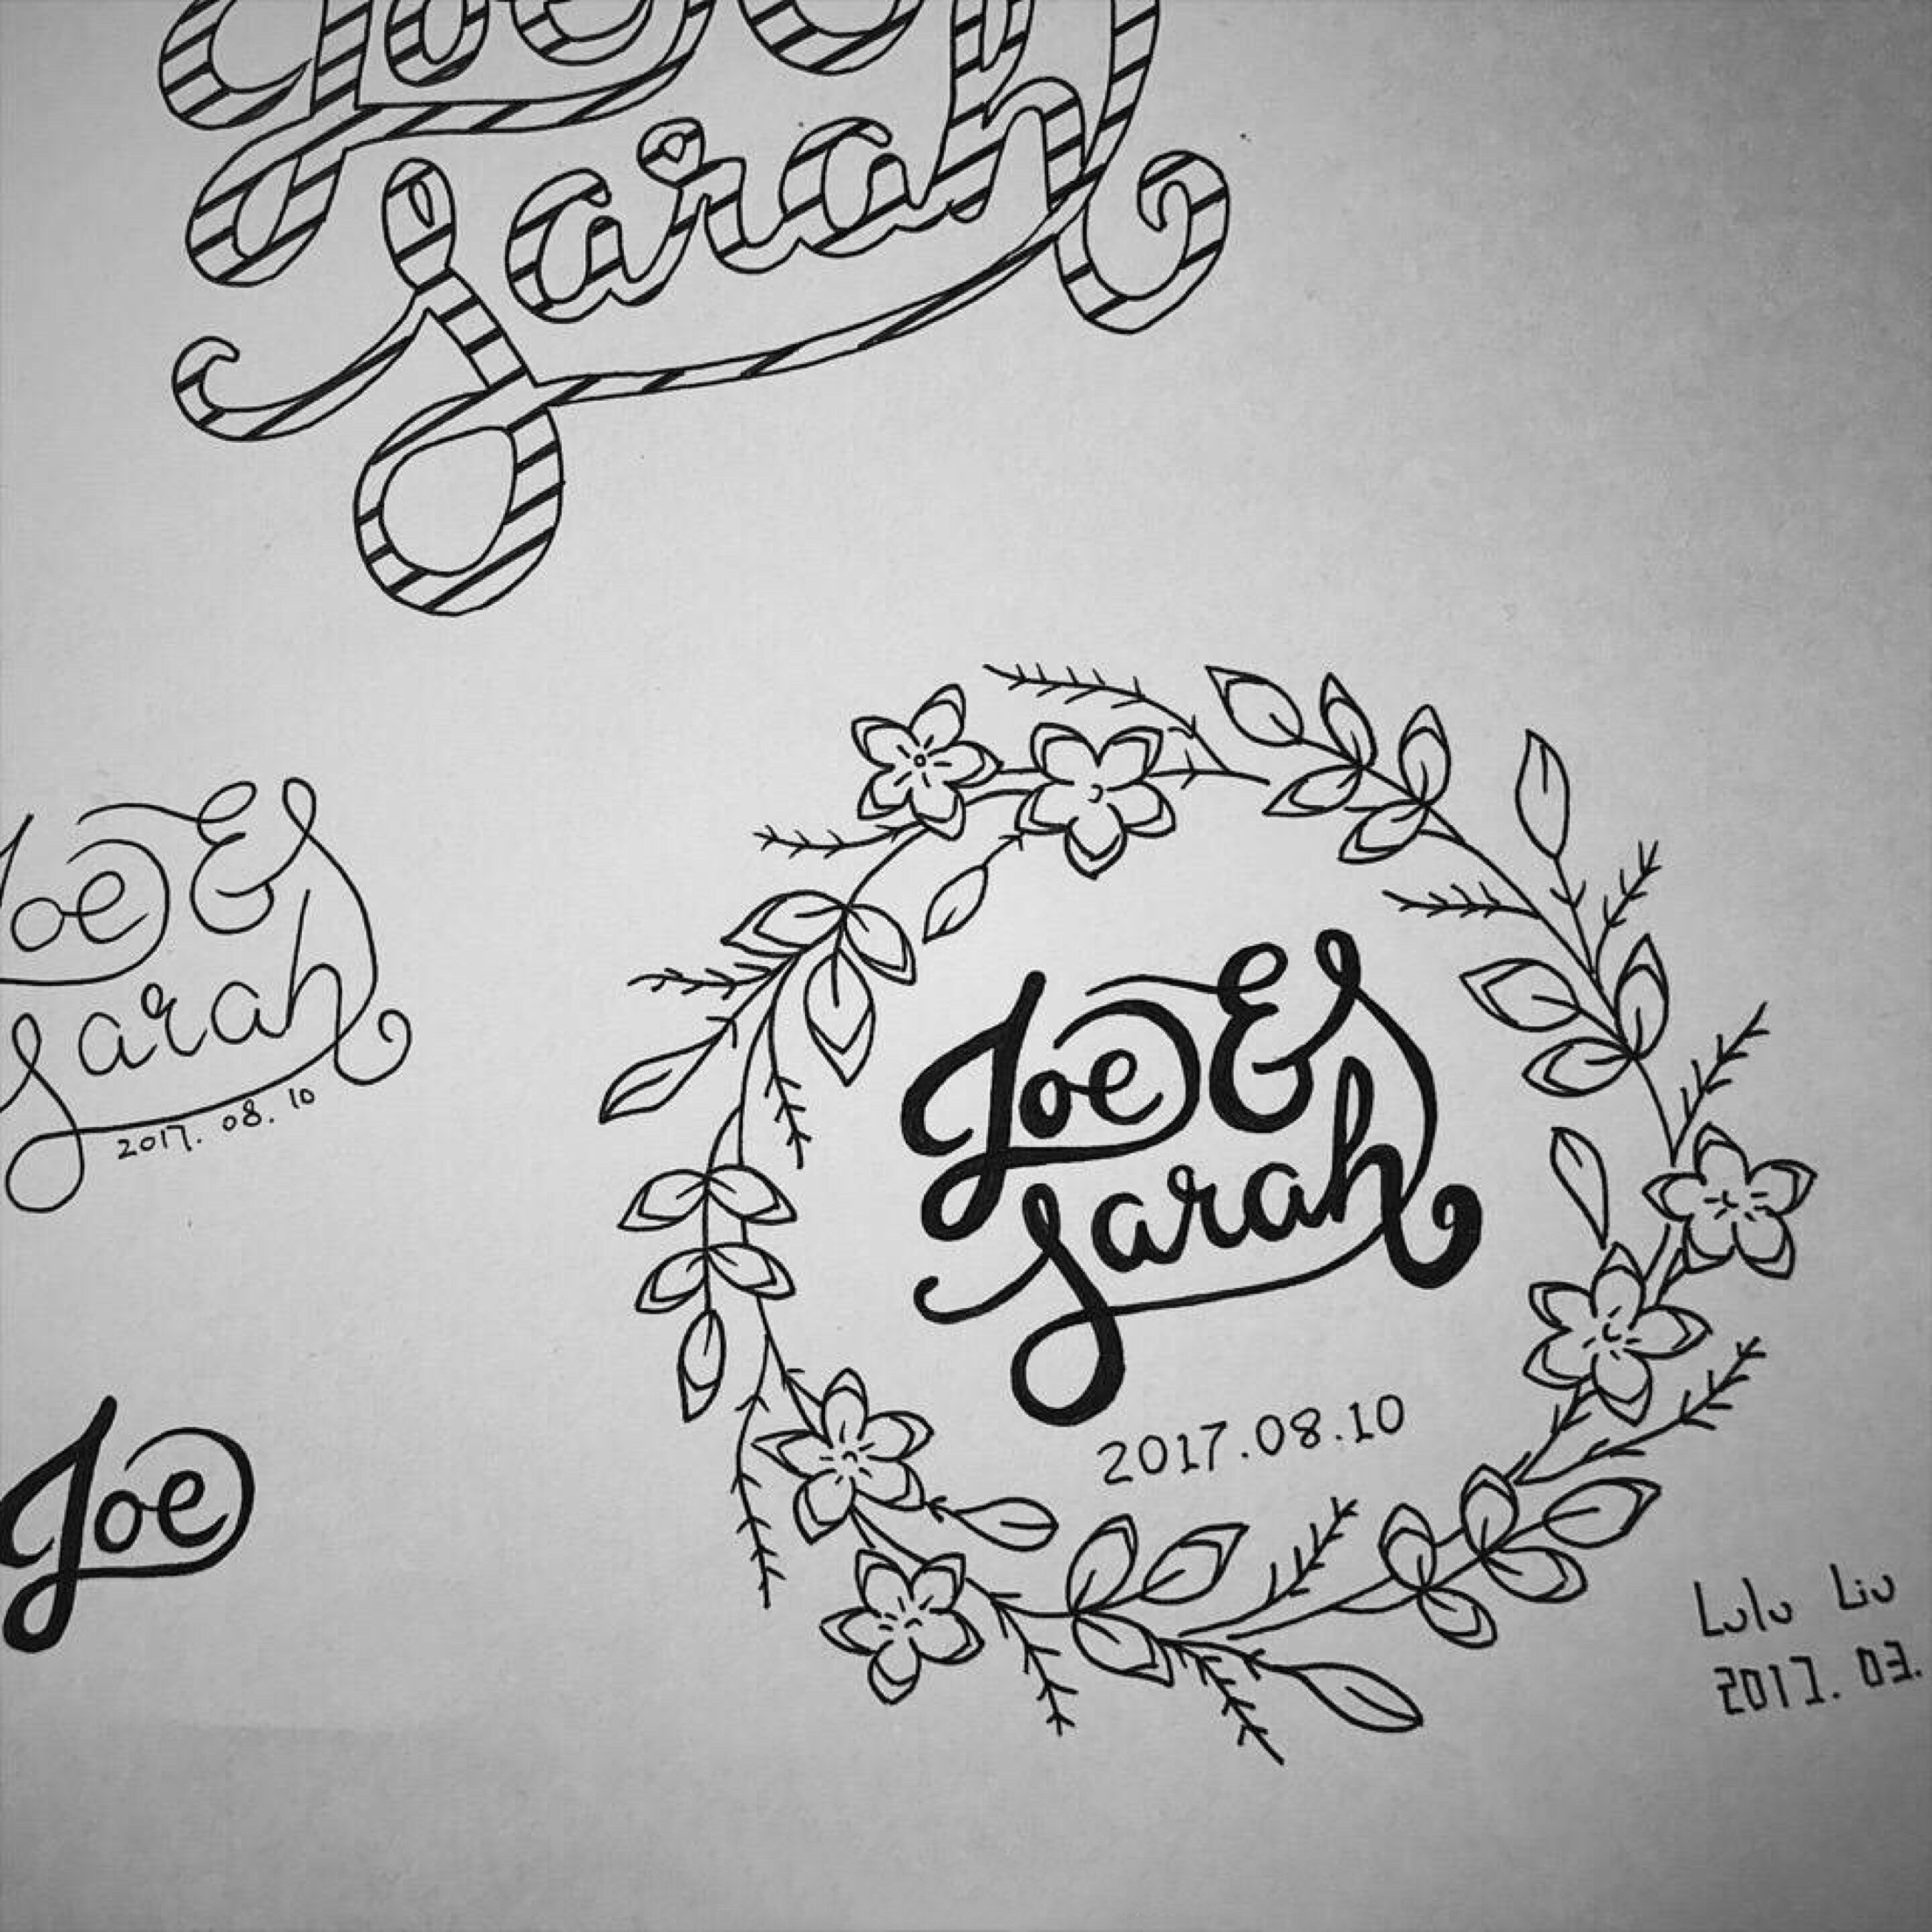 Joe &
Sarah
Joe &
Sarah
2017.08.10
Joe
Joe &
Sarah
2017.08.10
Lulu Liu
2017.03.